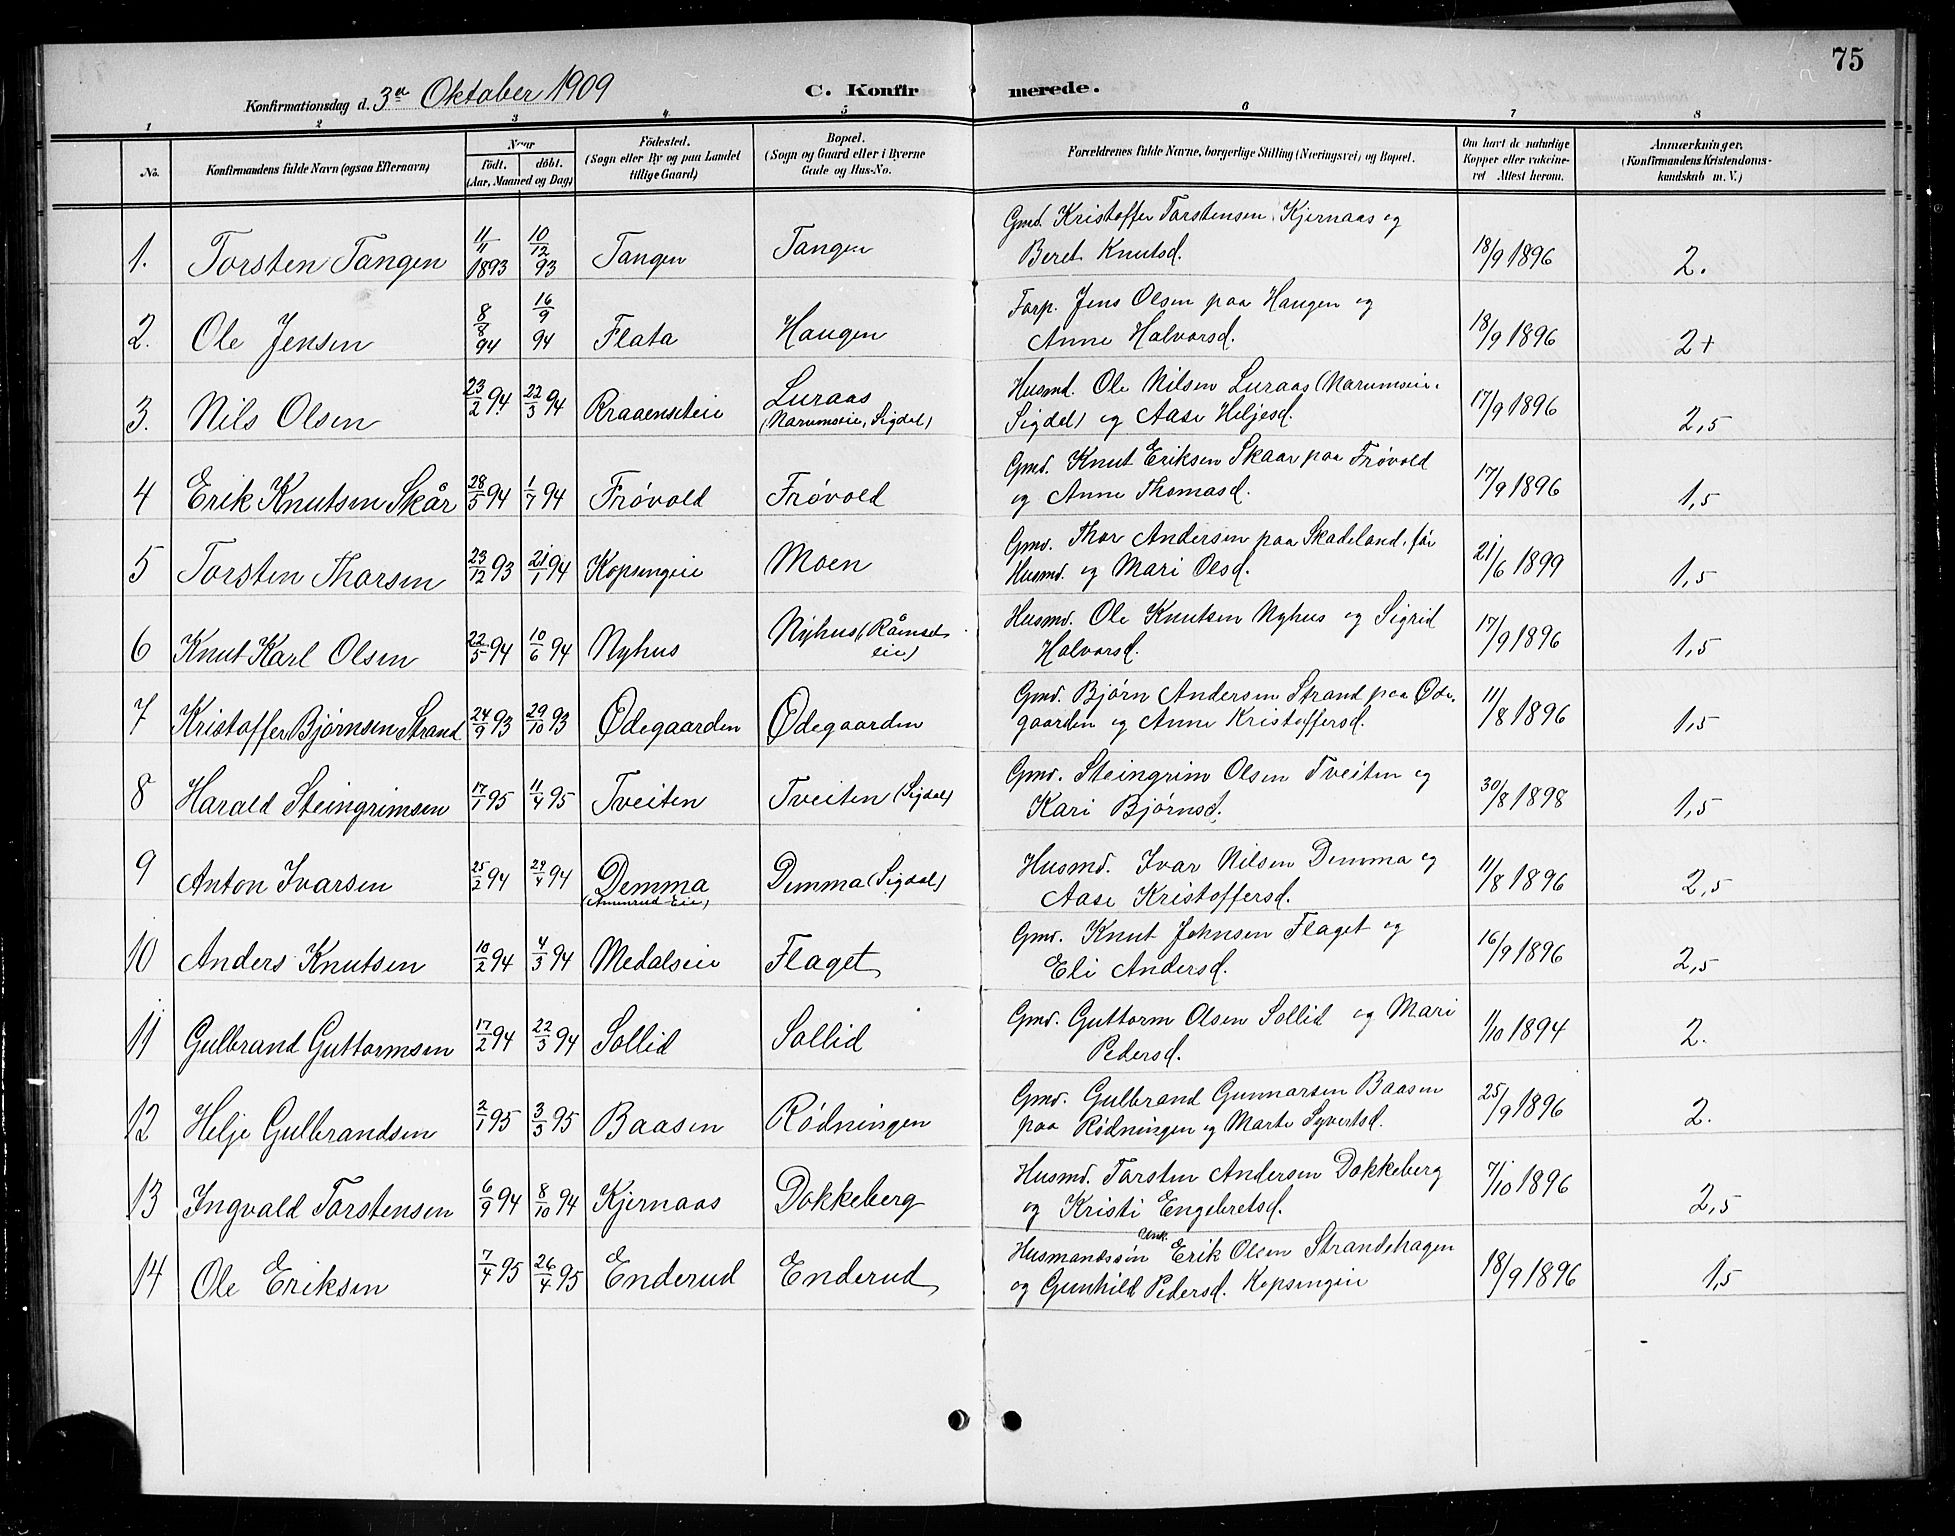 75
Konfirmationsdag d. 3die Oktober 1909 C. Konfirmerede.
1 2 3 4 5 6 7 8
No. Konfirmandens fulde Navn (ogsaa Efternavn) Naar Födt. döbt. (Aar, Maaned og Dag) Födested. (Sogn eller By og paa Landet tillige Gaard) Bopæl. (Sogn og Gaard eller i Byerne Gade og Hus-No. Forældrenes fulde Navne, borgerlige Stilling (Næringsvei) og Bopæl. Om havt de naturlige Kopper eller vakcineret Attest herom. Anmærkninger. (Konfirmandens Kristendomskundskab m. V.)
1. Torsten Tangen 11/11 1893 10/12 93 Tangen Tangen Gmd. Kristoffer Torstensen Kjernaas og Beret Knutsd. 18/9 1896 2.
2. Ole Jensen 8/8 94 16/9 94 Flata Haugen Forp. Jens Olsen paa Haugen og Anne Halvorsd. 18/9 1896 2+
3. Nils Olsen 23/2 94 22/3 94 Kraaenseie Luraas (Narumseie, Sigdal) Husmd. Ole Nilsen Luraas (Narumseie, Sigdal) og Aase Heljesd. 17/9 1896 2,5
4 Erik Knutsen Skår 28/5 94 1/7 94 Frøvold Frøvold Gmd. Knut Eriksen Skaar paa Frøvold og Anne Thomasd. 17/9 1896 1,5
5 Torsten Thorsen 23/12 93 21/1 94 Kopsengeie Moen Gmd. Thor Andersen paa Skadeland, før Husmd. og Mari Olsd. 21/6 1899 1,5
6 Knut Karl Olsen 22/5 94 10/6 94 Nyhus Nyhus (Råmseteie) Husmd. Ole Knutsen Nyhus og Sigrid Halvorsd. 17/9 1896 1,5
7 Kristoffer Bjørnsen Strand 24/9 93 29/10 93 Ødegaarden Ødegaarden Gmd. Bjørn Andersen Strand paa Ødegaarden og Anne Kristoffersd. 11/8 1896 1,5
8 Harald Steingrimsen 17/1 95 11/4 95 Tveiten Tveiten (Sigdal) Gmd. Steingrim Olsen Tveiten og Kari Bjørnsd. 30/8 1898 1,5
9 Anton Ivarsen 25/2 94 29/4 94 Demma (Amunrud Eie) Demma (Sigdal) Husmd. Ivar Nilsen Demma og Aase Kristoffersd. 11/8 1896 2,5
10 Anders Knutsen 10/2 94 4/3 94 Medalseie Flaget Gmd. Knut Johnsen Flaget og Eli Andersd. 16/9 1896 2,5
11 Gulbrand Guttormsen 17/2 94 22/3 94 Sollid Sollid Gmd. Guttorm Olsen Sollid og Mari Pedersd. 1/10 1894 2.
12 Helje Gulbrandsen 2/1 95 3/3 95 Baasen Rødningen Gmd. Gulbrand Gunnarsen Baasen paa Rødningen og Marte Syvertsd. 25/9 1896 2.
13 Ingvald Torstensen 6/9 94 8/10 94 Kjernaas Dokkeberg Husmd. Torsten Andersen Dokkeberg og Kristi Engebretsd. 7/10 1896 2,5
14 Ole Eriksen 7/4 95 26/4 95 Enderud Enderud Husmandssøn Unk. Erik Olsen Strandehagen og Gunhild Pedersd. Kopsengeie 18/9 1896 1,5